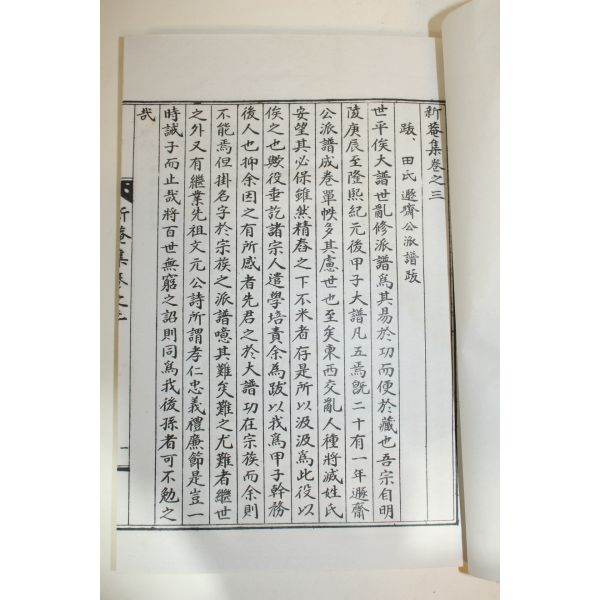 新菴集卷之三
跋、田氏遯齋公派譜跋
世平俟大譜世亂修派譜爲其易於功而便於藏也吾宗自明
陵庚辰至隆熙紀元後甲子大譜凡五焉旣二十有一年遯齋
公派譜成卷單帙多其慮世也至矣東西交亂人種將滅姓氏
安望其必保雖然精舂之下不米者存是所以汲汲爲此役以
俟之也歟役垂訖諸宗人遣學培責余為跋以我爲甲子幹務
後人也抑余因之有所感者先君之於大譜功在宗族而余則
不能焉但掛名字於宗族之派譜噫其難矣難之尤難者繼世
之外又有繼業先祖文元公詩所謂孝仁忠義禮廉節是豈一
時誡子而止哉將百世無窮之詔則同爲我後孫者可不勉之
哉
新菴集卷之三
一